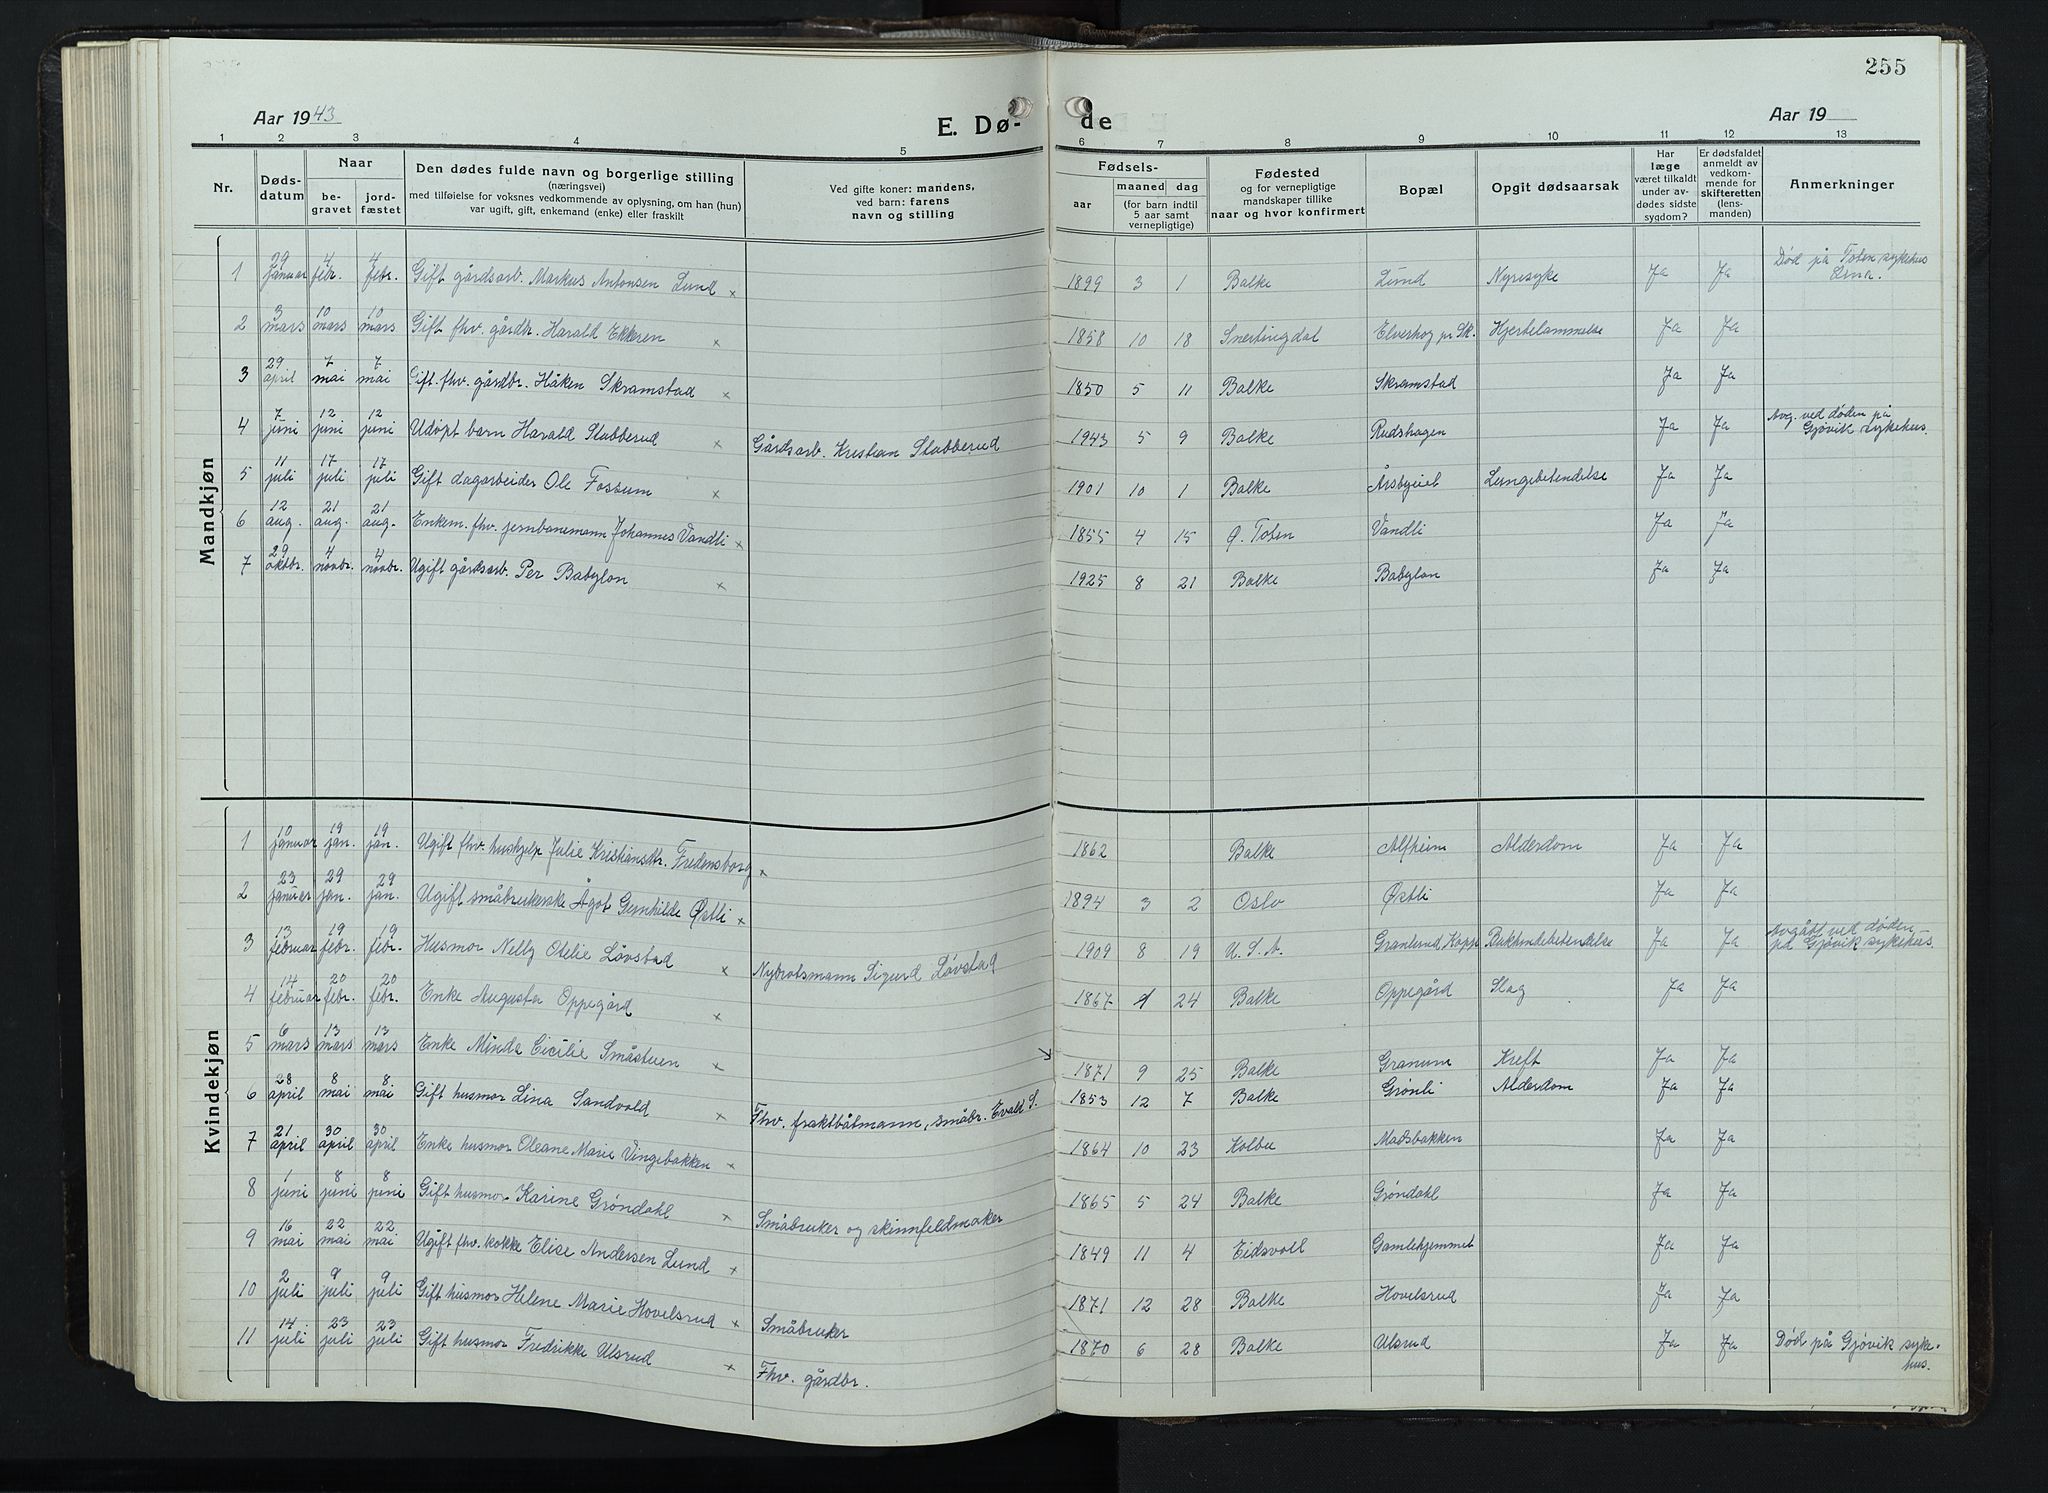 255
Aar 1943
E. Dø-
de
Aar 19
1 2 3 4 5 6 7 8 9 10 11 12 13
Nr.
Døds-
datum
Naar
be-
gravet
jord-
fæstet
Den dødes fulde navn og borgerlige stilling
(næringsvei)
med tilføielse for voksnes vedkommende av oplysning, om han (hun)
var ugift, gift, enkemand (enke) eller fraskilt
Ved gifte koner: mandens,
ved barn: farens
navn og stilling
Fødsels-
aar
maaned
dag
(for barn indtil
5 aar samt
vernepligtige)
Fødested
og for vernepligtige
mandskaper tillike
naar og hvor konfirmert
Bopæl
Opgit dødsaarsak
Har
læge
været tilkaldt
under av-
dødes sidste
sygdom?
Er dødsfaldet
anmeldt av
vedkom-
mende for
skifteretten
(lens-
manden)
Anmerkninger
Mandkjøn
1 29 januar 4 febr. 4 febr. Gift gårdsarb. Markus Antonsen Lund x 1899 3 1 Balke Lund Nyresyke Ja Ja Død på Toten sykehus
Lena.
2 3 mars 10 mars 10 mars Gift fhv. gårdbr. Harald Ekkeren x 1858 10 18 Snertingdal Elverhog pr Sk. Hjertelammelse Ja Ja
3 29 april 7 mai 7 mai Gift fhv. gårdbr. Håken Skramstad x 1850 5 11 Balke Skramstad Ja Ja
4 7 juni 12 juni 12 juni Udøpt barn Harald Stubberud x Gårdsarb. Kristian Stubberud 1943 5 9 Balke Rudshagen Ja Ja Avg. ved døden på
Gjøvik sykehus.
5 11 juli 17 juli 17 juli Gift dagarbeider Ole Fossum x 1901 10 1 Balke Årsbyeiet Lungebetendelse Ja Ja
6 12 aug. 21 aug. 21 aug. Enkem. fhv. jernbanemann Johannes Vandli x 1855 4 15 Ø. Toten Vandli Ja Ja
7 29 oktbr. 4 novbr. 4 novbr. Ugift gårdsarb. Per Babylon x 1925 8 21 Balke Babylon Ja Ja
Kvindekjøn
1 10 januar 19 jan. 19 jan. Ugift fhv. hushjelp Julie Kristiansdtr. Fredensborg x 1862 Balke Alfheim Alderdom Ja Ja
2 23 januar 29 jan. 29 jan. Ugift småbrukerske Ågot Gunhilde Østli x 1894 3 2 Oslo Østli Ja Ja
3 13 februar 19 febr. 19 febr. Husmor Nelly Otelie Løvstad x Nybrotsmann Sigurd Løvstad 1909 8 19 U.S.A. Granlund, Kapp Bukhindebetendelse Ja Ja Avgått ved døden
på Gjøvik sykehus.
4 14 februar 20 febr. 20 febr. Enke Augusta Oppegård x 1867 24 Balke Oppegård Slag Ja Ja
5 6 mars 13 mars 13 mars Enke Minda Cicilie Småstuen x 1871 9 25 Balke Granum Kreft Ja Ja
6 28 april 8 mai 8 mai Gift husmor Lina Sandvold x Fhv. fraktbåtmann, småbr. Evald S. 1853 12 7 Balke Grønli Alderdom Ja Ja
7 21 april 30 april 30 april Enke husmor Oleane Marie Vingebakken x 1864 10 23 Kolbu Madsbakken Ja Ja
8 1 juni 8 juni 8 juni Gift husmor Karine Grøndahl x Småbruker og skinnfeldmaker 1865 5 24 Balke Grøndahl Ja Ja
9 16 mai 22 mai 22 mai Ugift fhv. kokke Elise Andersen Lund x 1849 11 4 Eidsvoll Gamlehjemmet Ja Ja
10 2 juli 9 juli 9 juli Gift husmor Helene Marie Hovelsrud x Småbruker 1871 12 28 Balke Hovelsrud Ja Ja
11 14 juli 23 juli 23 juli Gift husmor Fredrikke Ulsrud x Fhv. gårdbr. 1870 6 28 Balke Ulsrud Ja Ja Død på Gjøvik syke-
hus.